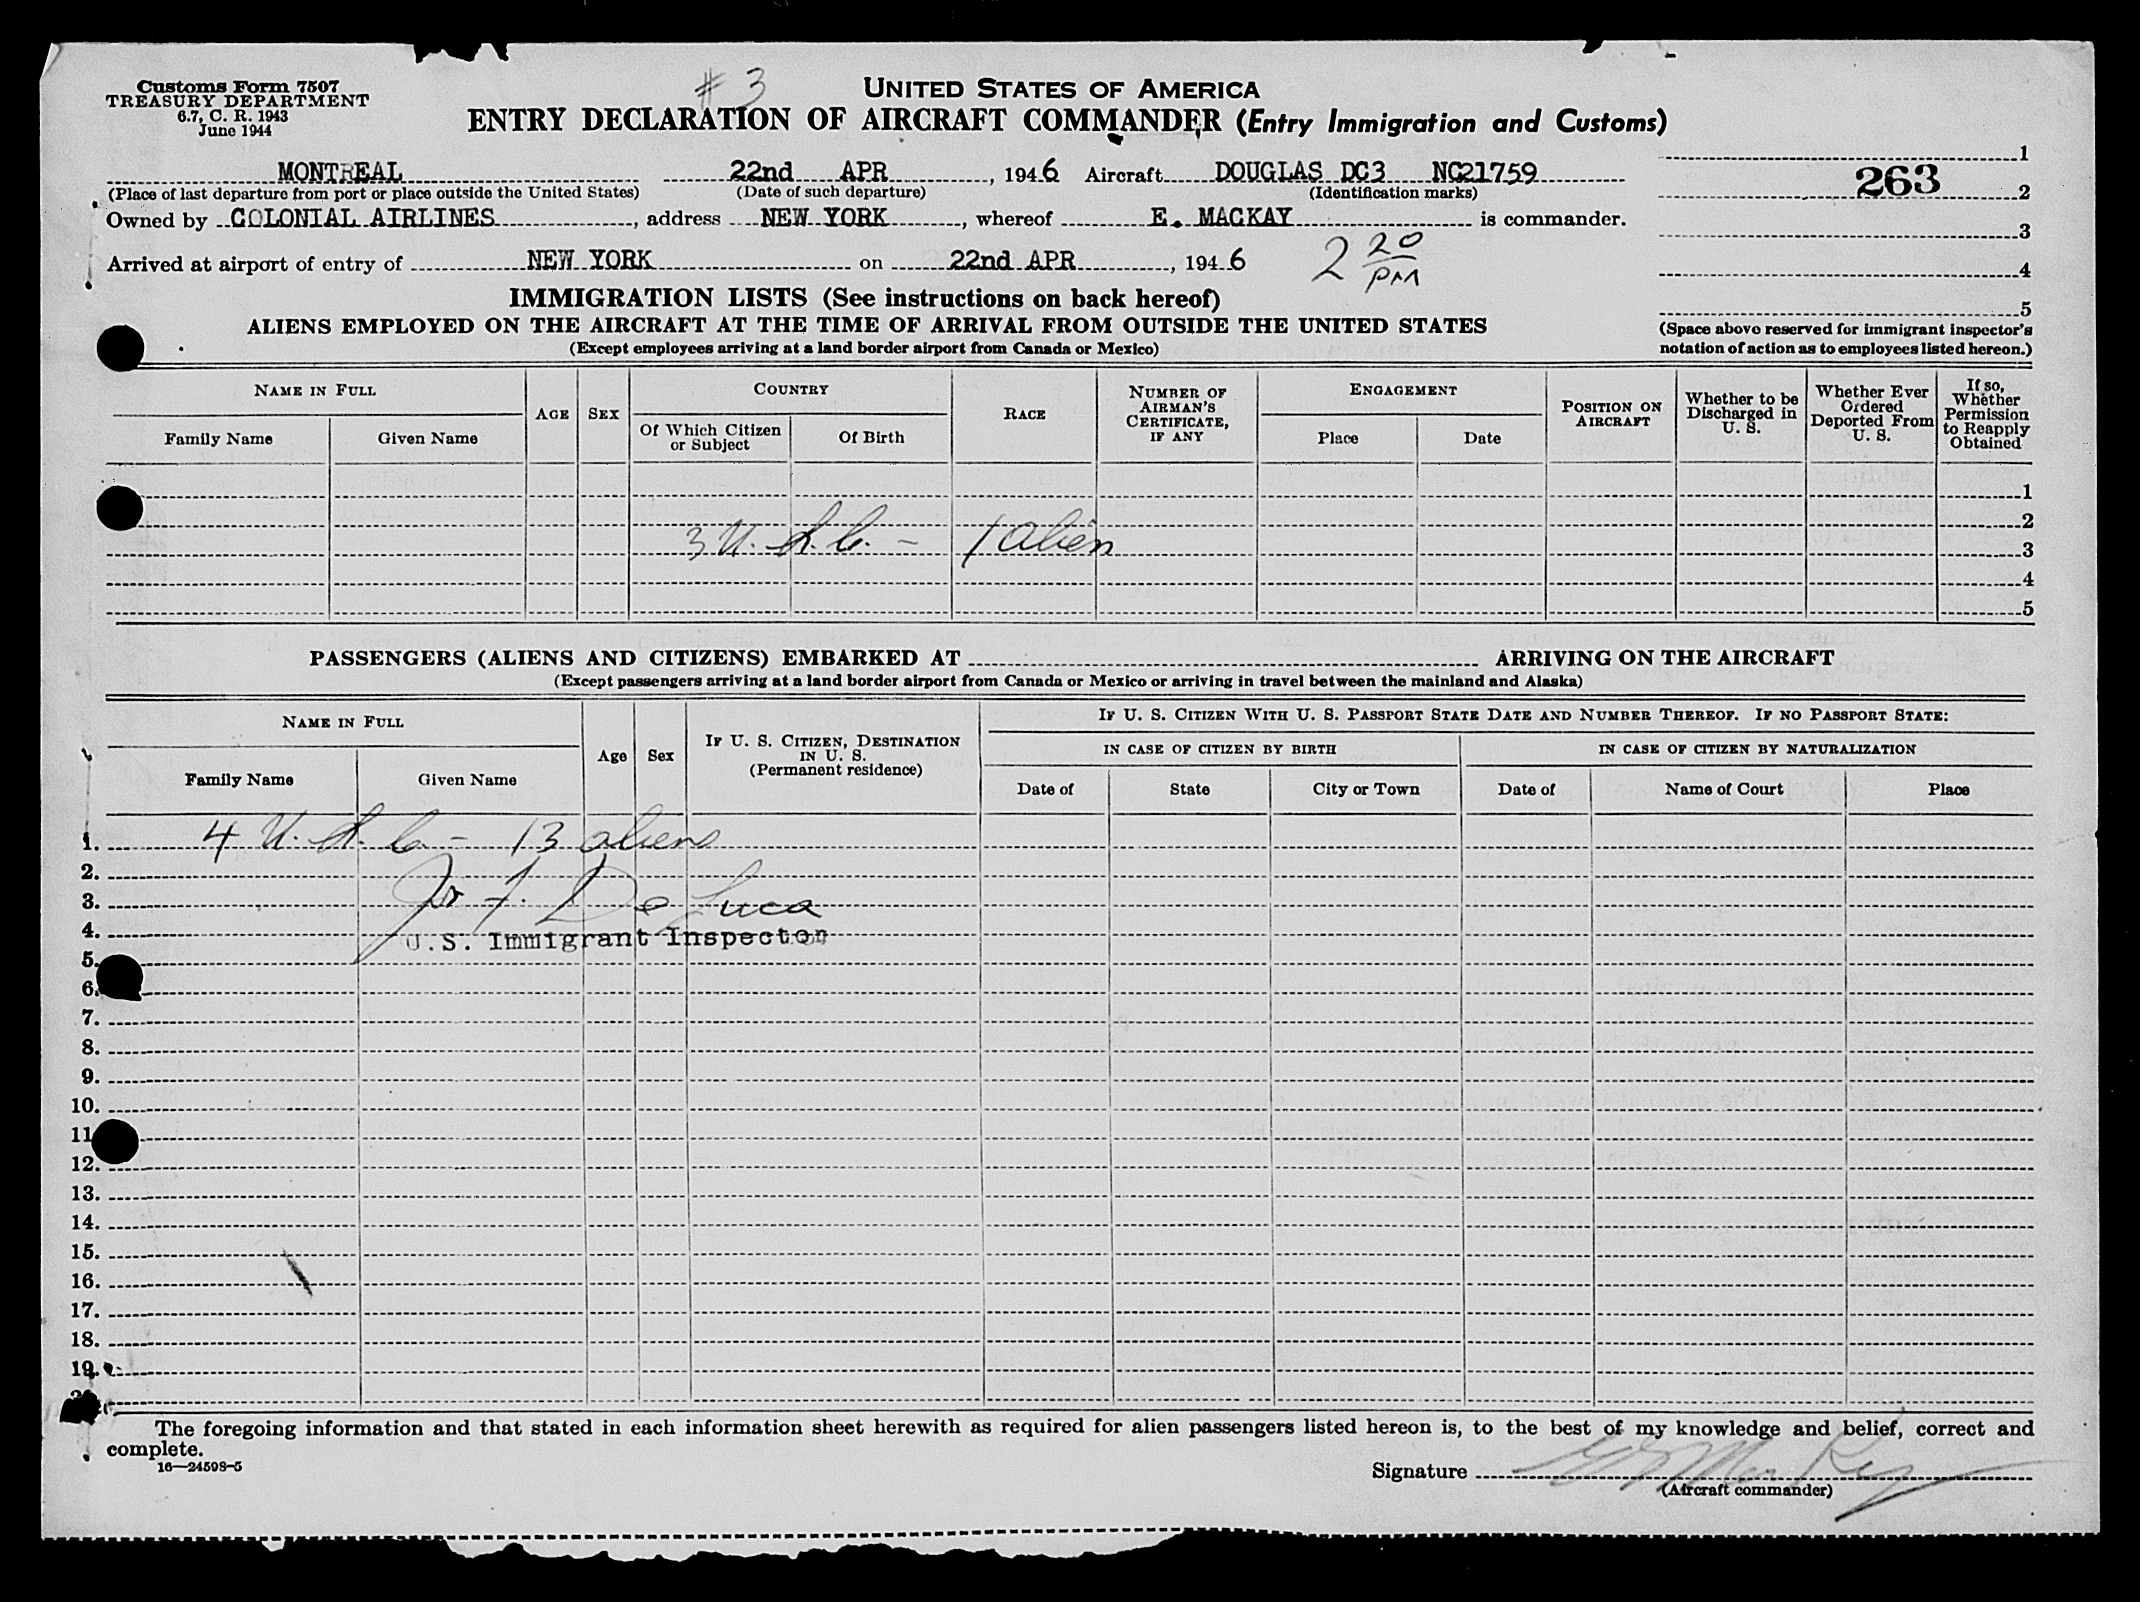 Customs Form 7507
TREASURY DEPARTMENT
6.7, C. R. 1943
June 1944
# 3
UNITED STATES OF AMERICA
ENTRY DECLARATION OF AIRCRAFT COMMANDER (Entry Immigration and Customs)
MONTREAL 22nd APR, 1946 Aircraft DOUGLAS DC3 NC21759
(Place of last departure from port or place outside the United States) (Date of such departure) (Identification marks)
Owned by COLONIAL AIRLINES, address NEW YORK, whereof E. MACKAY is commander.
Arrived at airport of entry of NEW YORK on 22nd APR, 1946 2 20 PM
1
263 2
3
4
5
(Space above reserved for immigrant inspector's
notation of action as to employees listed hereon.)
IMMIGRATION LISTS (See instructions on back hereof)
ALIENS EMPLOYED ON THE AIRCRAFT AT THE TIME OF ARRIVAL FROM OUTSIDE THE UNITED STATES
(Except employees arriving at a land border airport from Canada or Mexico)
NAME IN FULL
Family Name Given Name
AGE
SEX
COUNTRY
Of Which Citizen or Subject
Of Birth
RACE
NUMBER OF AIRMAN'S CERTIFICATE, IF ANY
ENGAGEMENT
Place Date
POSITION ON AIRCRAFT
Whether to be Discharged in U. S.
Whether Ever Ordered Deported From U. S.
If so, Whether Permission to Reapply Obtained
1
2
3 U. S. C. - 1 alien 3
4
5
PASSENGERS (ALIENS AND CITIZENS) EMBARKED AT ARRIVING ON THE AIRCRAFT
(Except passengers arriving at a land border airport from Canada or Mexico or arriving in travel between the mainland and Alaska)
NAME IN FULL
Family Name Given Name
Age
Sex
IF U. S. CITIZEN, DESTINATION IN U. S.
(Permanent residence)
IF U. S. CITIZEN WITH U. S. PASSPORT STATE DATE AND NUMBER THEREOF. IF NO PASSPORT STATE:
IN CASE OF CITIZEN BY BIRTH IN CASE OF CITIZEN BY NATURALIZATION
Date of State City or Town Date of Name of Court Place
1. 4 U. S. C. - 13 aliens
2.
3. F. De Luca
4. U.S. Immigrant Inspector
5.
6.
7.
8.
9.
10.
11
12.
13.
14.
15.
16.
17.
18.
19.
The foregoing information and that stated in each information sheet herewith as required for alien passengers listed hereon is, to the best of my knowledge and belief, correct and
complete.
16—24598-5
Signature
(Aircraft commander)